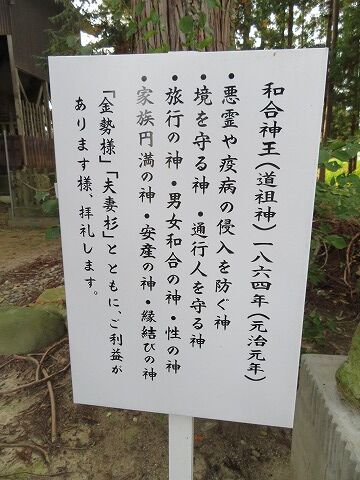 和合神王(道祖神)一八六四年(元治元年)
・悪霊や疫病の侵入を防ぐ神
・境を守る神・通行人を守る神
・旅行の神・男女和合の神・性の神
・家族円満の神・安産の神・縁結びの神
「金勢様」「夫妻杉」とともに、ご利益が
あります様、拝礼します。